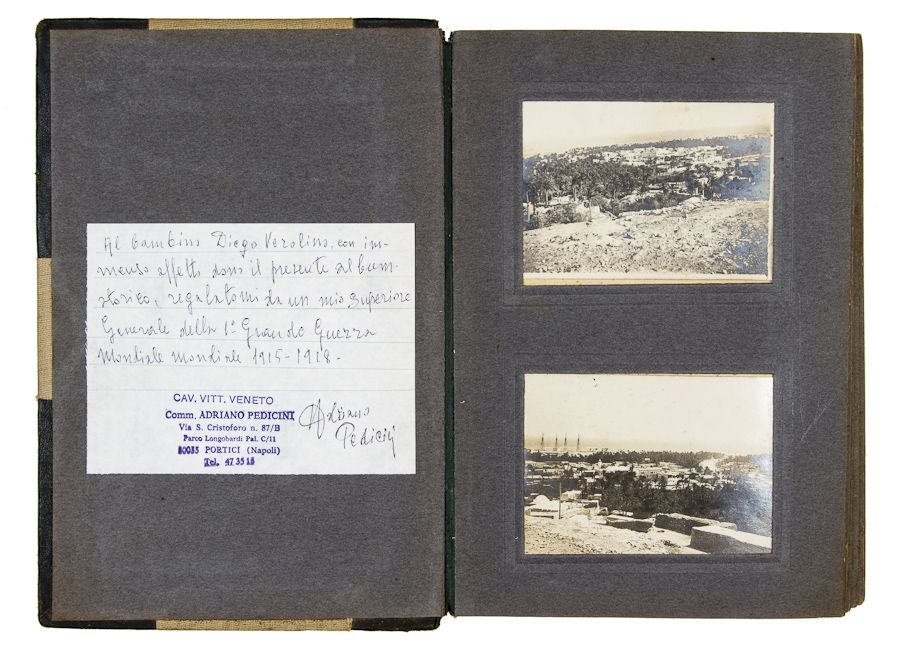 Al bambino Diego Verolino, con im-
menso affetto dono il presente album
storico, regalatomi da un mio superiore
Generale della 1ª Grande Guerra
Mondiale mondiale 1915-1918-
CAV. VITT. VENETO
Comm. ADRIANO PEDICINI
Via S. Cristoforo n. 87/B
Parco Longobardi Pal. C/11
80055 PORTICI (Napoli)
Tel. 47 35 15
Adriano
Pedicini